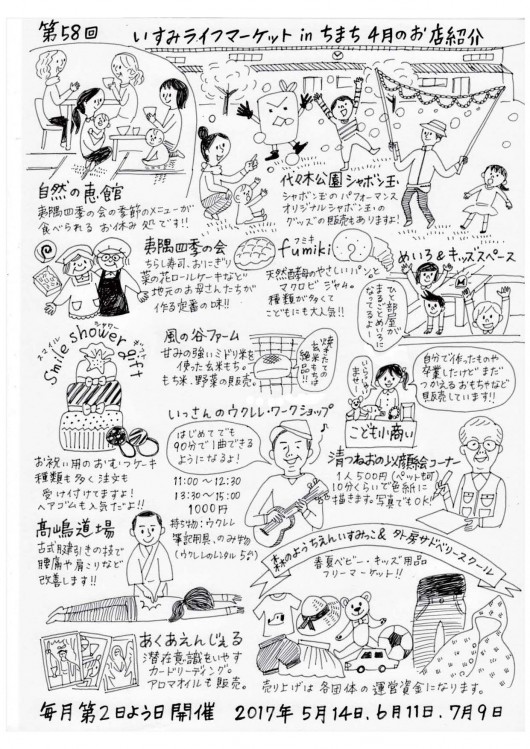 第58回 いすみライフマーケット in ちまち 4月のお店紹介
自然の恵館
夷隅四季の会の季節のメニューが
食べられる お休み処です!!
代々木公園 シャボン玉
シャボン玉の パフォーマンス
オリジナルシャボン玉の
グッズの販売もありますよ!
夷隅四季の会
ちらし寿司、おにぎり
菜の花ロールケーキなど
地元のお母さんたちが
作る定番の味!!
フミキ
fumiki
天然酵母のやさしいパンと
マクロビ ジャム。
種類が多くて
こどもにも大人気!!
めいろ&キッズスペース
ひと部屋が
まるごとめいろに
なってるよー
スマイル シャワー ギフト
Smile shower gift
お祝い用のおむつケーキ
種類も多く注文も
受け付けてますよ!
ヘアゴムも人気だよ!!
風の谷ファーム
甘みの強いミドリ米を
使った玄米もち。
もち米、野菜の販売。
焼きたての
玄米もちは
絶品!!
いらっしゃい
ませー!
こども小商い
自分で作ったものや
卒業したけど まだ
つかえる おもちゃなど
販売しています!!
いっさんのウクレレ・ワークショップ
はじめてでも
90分で1曲できる
ようになるよ!
11:00～12:30
13:30～15:00
1000円
持ち物:ウクレレ
筆記用具、のみ物
(ウクレレのレンタル 5台)
清つねおの似顔絵コーナー
1人500円(ペットも可)
10分くらいで色紙に
描きます。写真でもOK!!
髙嶋道場
古式腱引きの技で
腰痛や肩こりなど
改善します!!
森のようちえんいすみっこ& 外房サドベリースクール
春夏ベビー・キッズ用品
フリーマーケット!!
あくあえんじぇる
潜在意識もいやす
カードリーディング。
アロマオイルも販売。
売り上げは 各団体の 運営資金になります。
毎月第2日よう日開催 2017年 5月14日、6月11日、7月9日